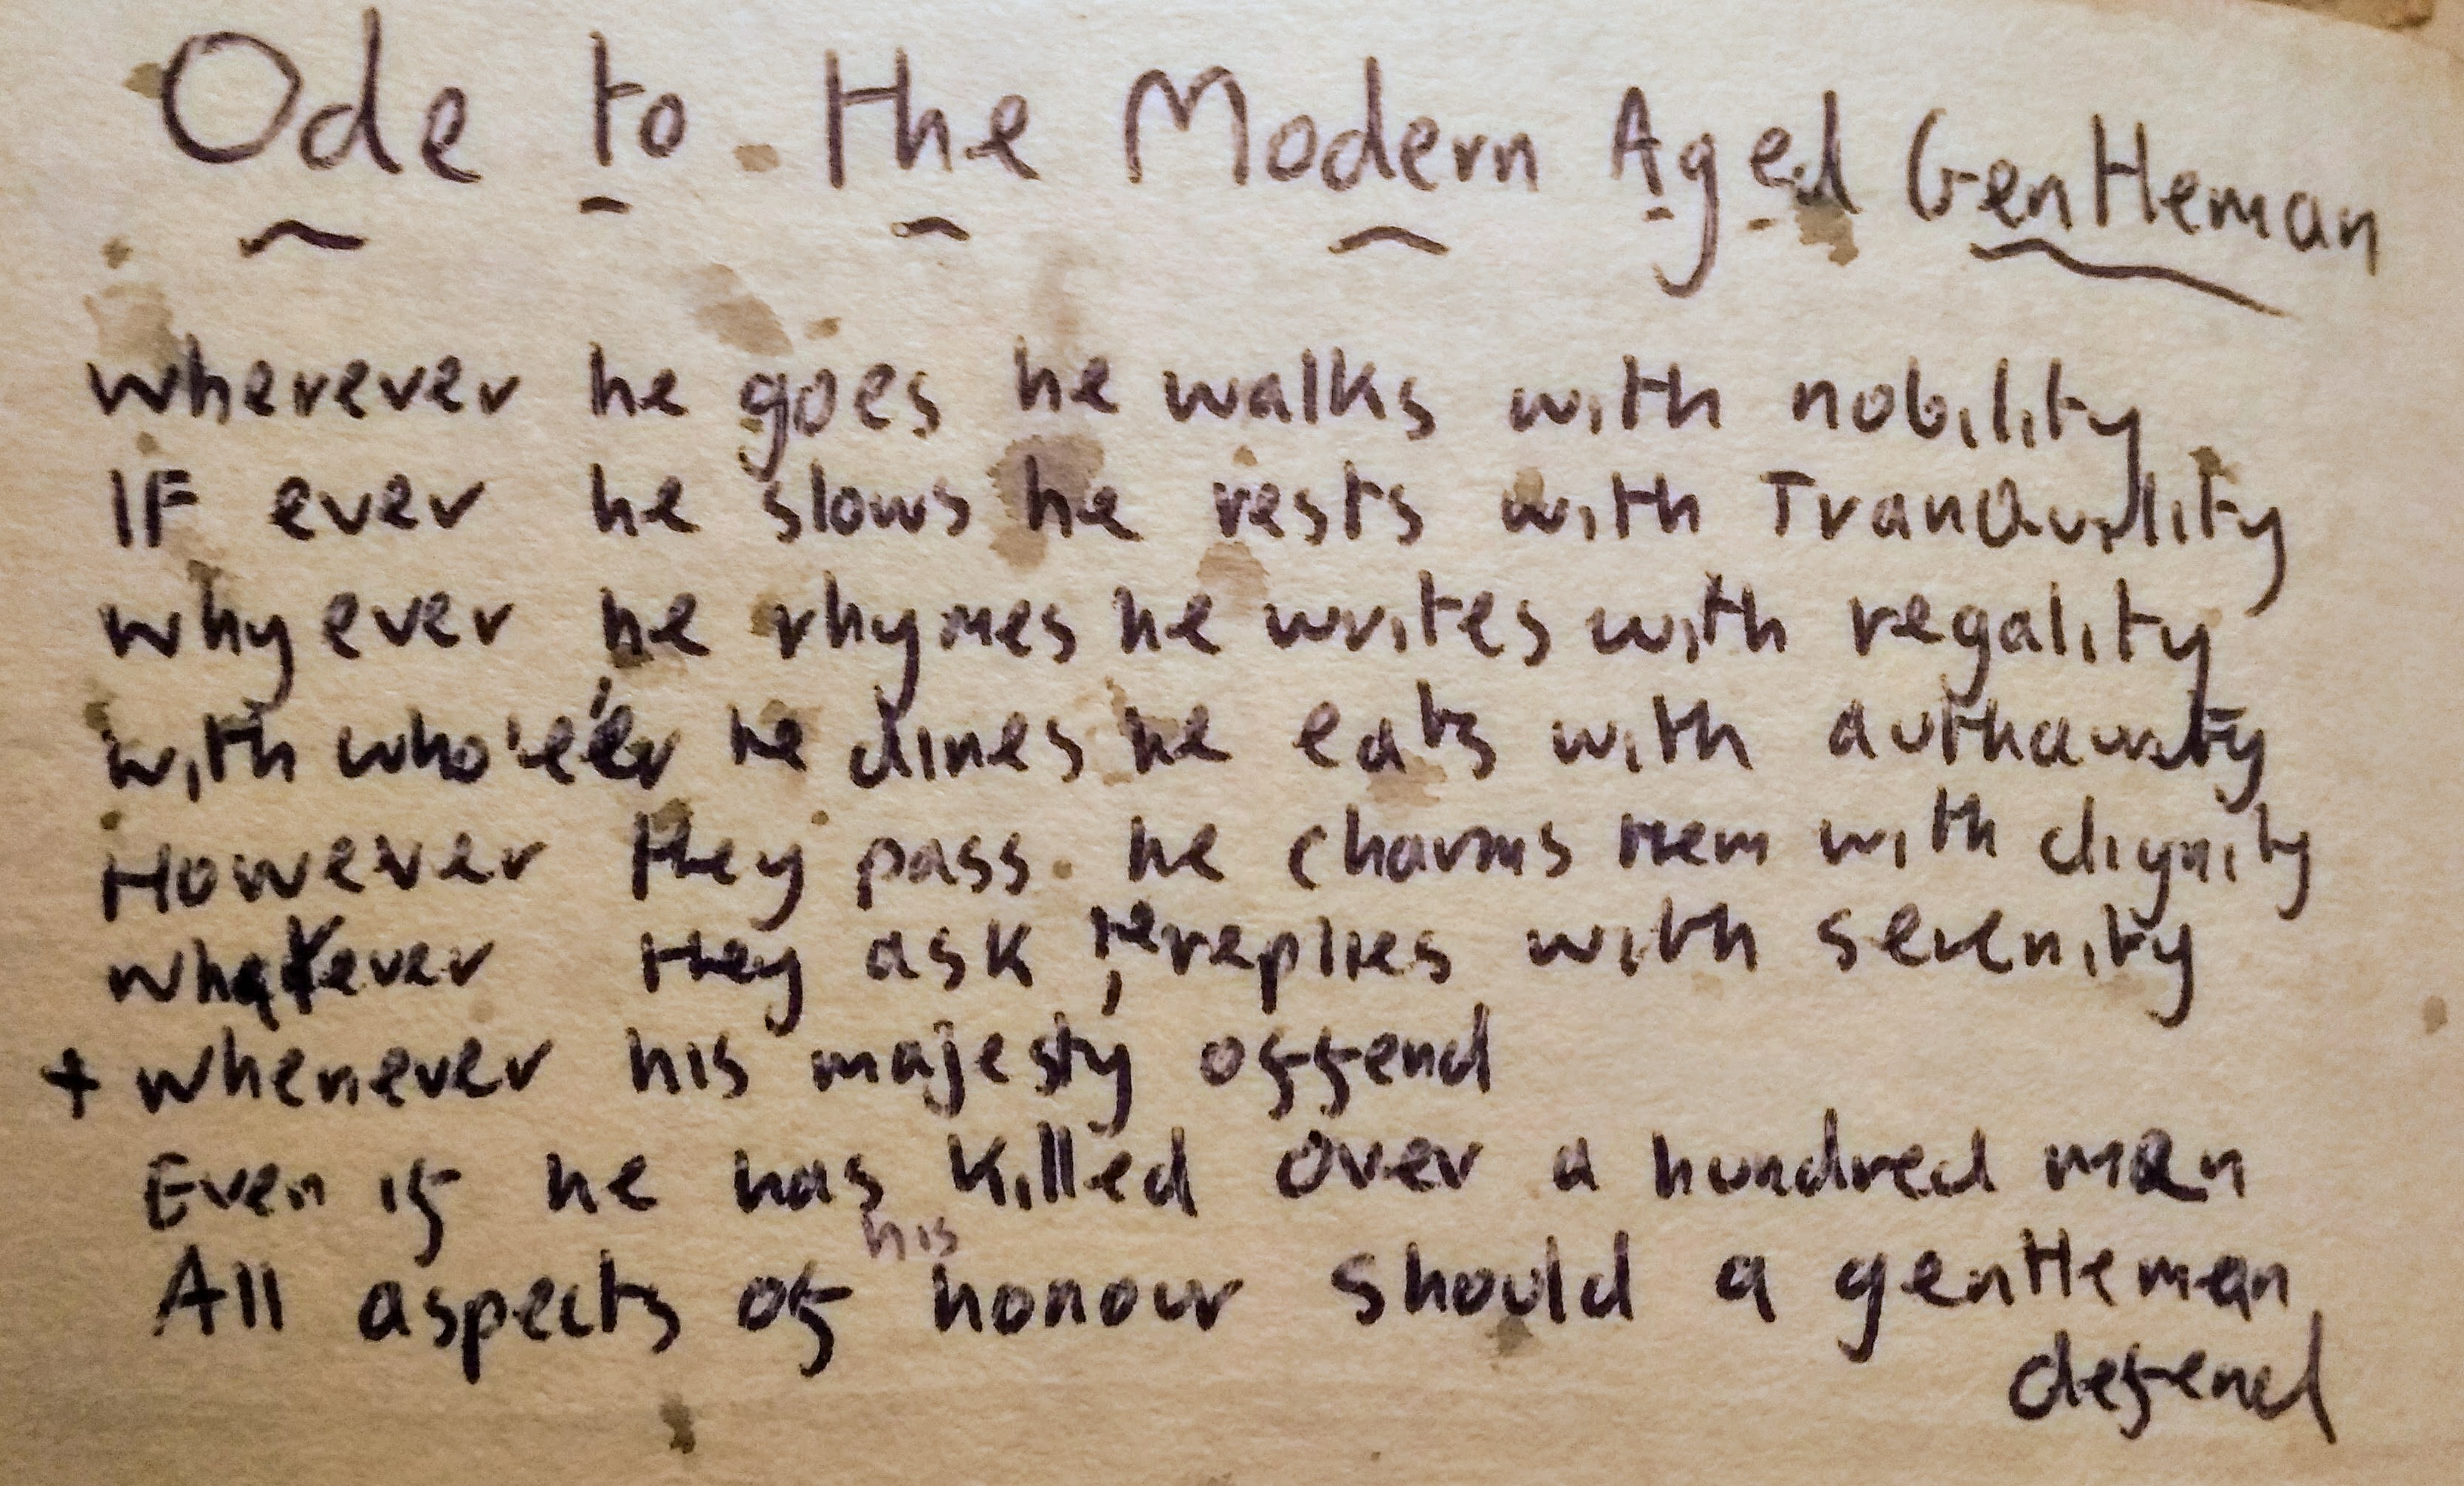 Ode to the Modern Aged Gentleman
wherever he goes he walks with nobility
IF ever he slows he rests with TranQuility
whyever he rhymes he writes with regality
with who'e'er he dines he eats with
However they pass he charms them with dignity
whatever they ask he replies with serenity
+ whenever his majesty offend
Even if he has killed over a hundred men
All aspects of his honour should a gentleman
defend